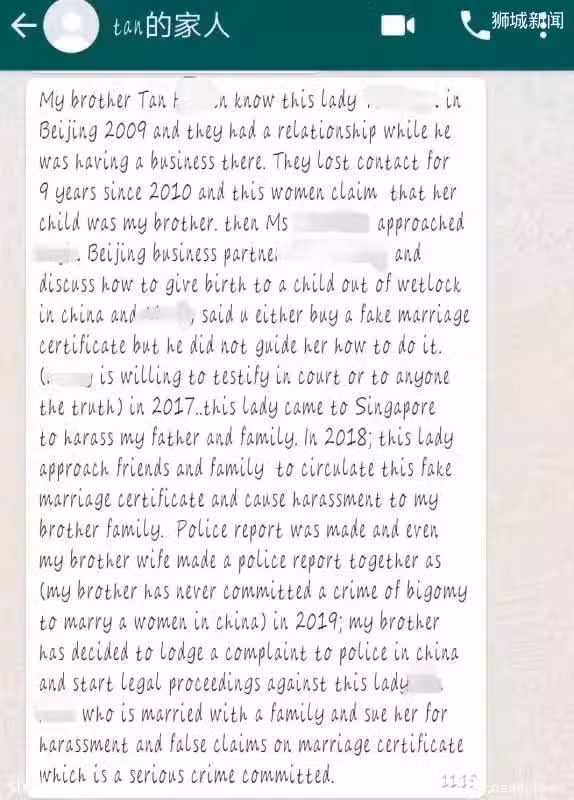 tan的家人
狮城新闻
My brother Tan know this lady in
Beijing 2009 and they had a relationship while he
was having a business there. They lost contact for
9 years since 2010 and this women claim that her
child was my brother. then Ms approached
. Beijing business and
discuss how to give birth to a child out of wetlock
in china and , said u either buy a fake marriage
certificate but he did not guide her how to do it.
( is willing to testify in court or to anyone
the truth) in 2017..this lady came to Singapore
to harass my father and family. In 2018; this lady
approach friends and family to circulate this fake
marriage certificate and cause harassment to my
brother family. Police report was made and even
my brother wife made a police report together as
(my brother has never committed a crime of bigomy
to marry a women in china) in 2019; my brother
has decided to lodge a complaint to police in china
and start legal proceedings against this lady
who is married with a family and sue her for
harassment and false claims on marriage certificate
which is a serious crime committed.